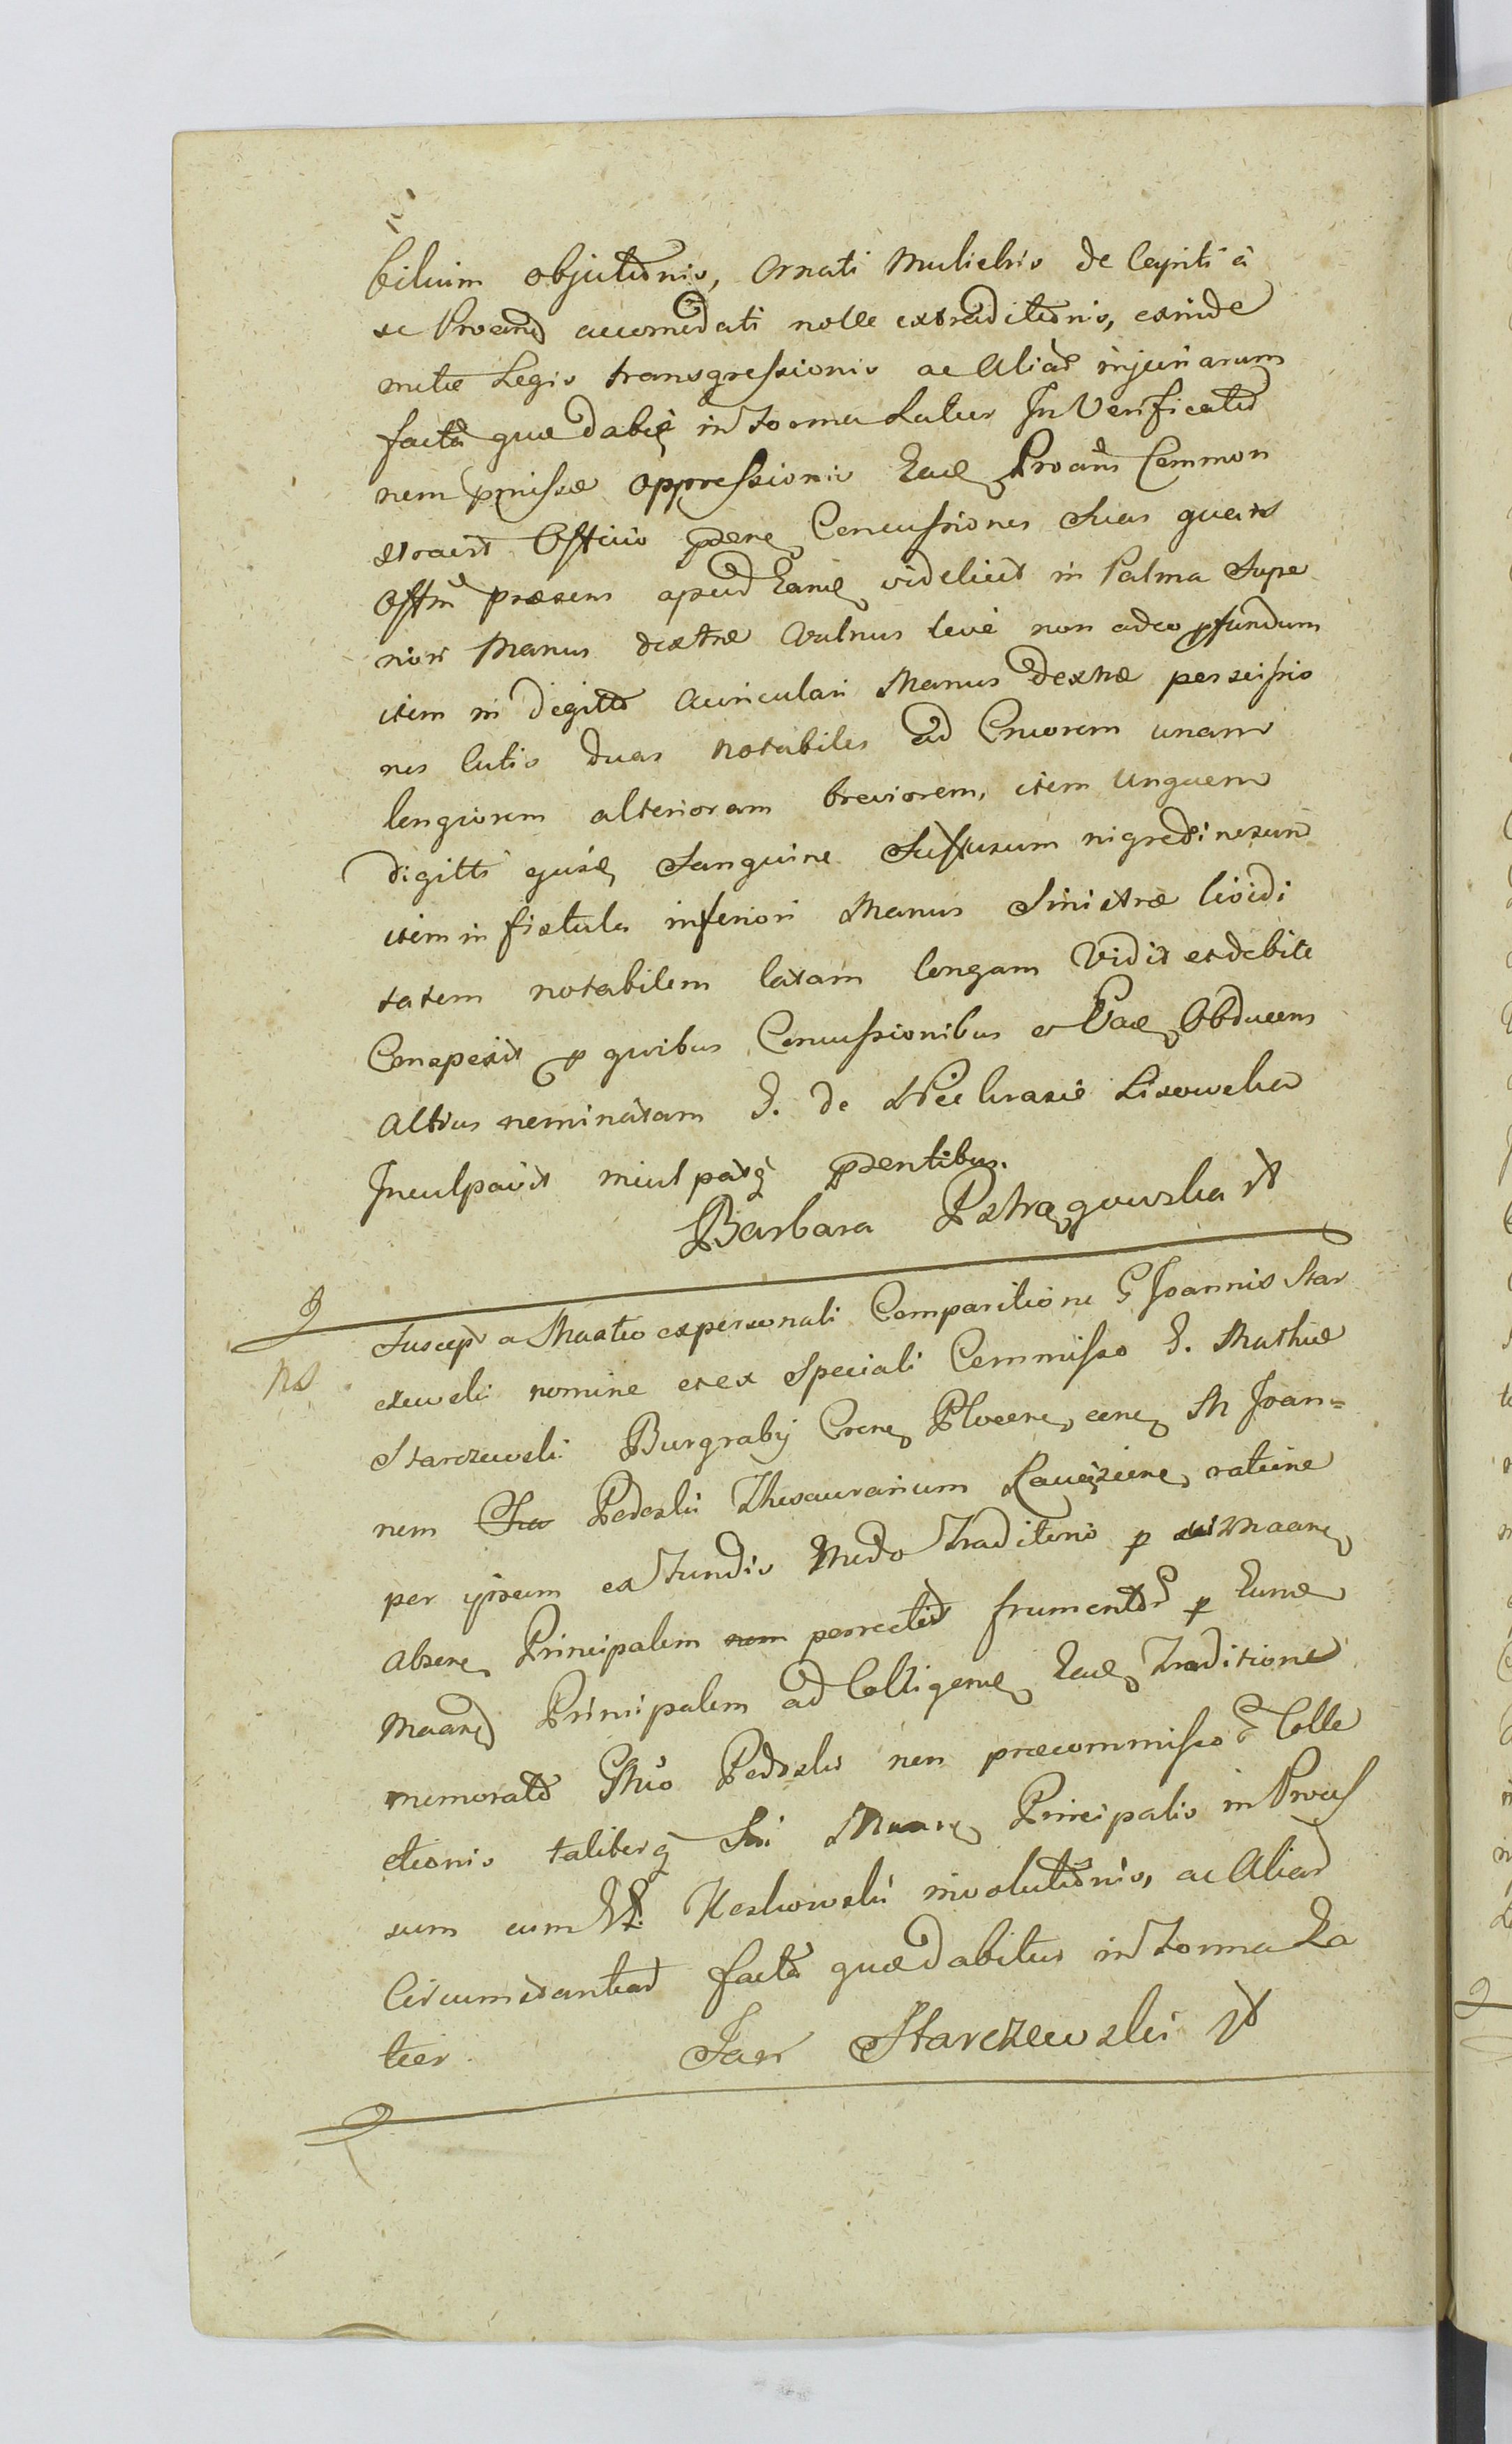 bilium objutionis, Ornati Muliebris de Capiti à
se Proand accomodati nolle extraditionis, exinde
mitæ Legis transgressionis ac Aliar injuriarum
facta quæ dabit in Forma Latius In Verificatio
nem pmissæ oppressionis Eade Proans Common
stravit Officio pdene Concussiones Suas quas
Offm præsens apud Eande videlicet in Palma Supe
riori Manus dextræ Vulnus leve non adeo pfundum
item in digitto Auriculari Manus dextræ perscissio
nes Cutis duas notabiles ad Cruorem unam
longiorem alterioram breviorem, item Unguem
digitti ejusde Sanguine Suffusum nigredinosum
item in fistula inferiori Manus Sinistræ lividi
tatem notabilem latam longam Vidit et debite
Conspexit p quibus Concussionibus et Eade Obducens
Altius neminatam G. de Lisowska
Inculpavit inculpatq pdentibus.
Barbara Pstrągowska
Suscep a Maateo ex personali Comparitione G Joannis Star
czewski nomine et ex Speciali Commisso G. Mathiæ
Starczewski Burgrabij Crene Plocene cone M Joan=
nem Podoski Thesaurarium ratione
per ipsum ex Fundis Modo Traditorio p Maare
absene Principalem non perrectio frumentor p Eunde
Maare Principalem ad Colligend Eade Traditione
memorato Gnso Podoski non præcommisso Colle
ctionis taliterq Sui Maare Principalis in Proces
sum cum involutionis, ac Aliar
Circumstantiar facta quæ dabitur in Forma La
tior. Jan Starczewski